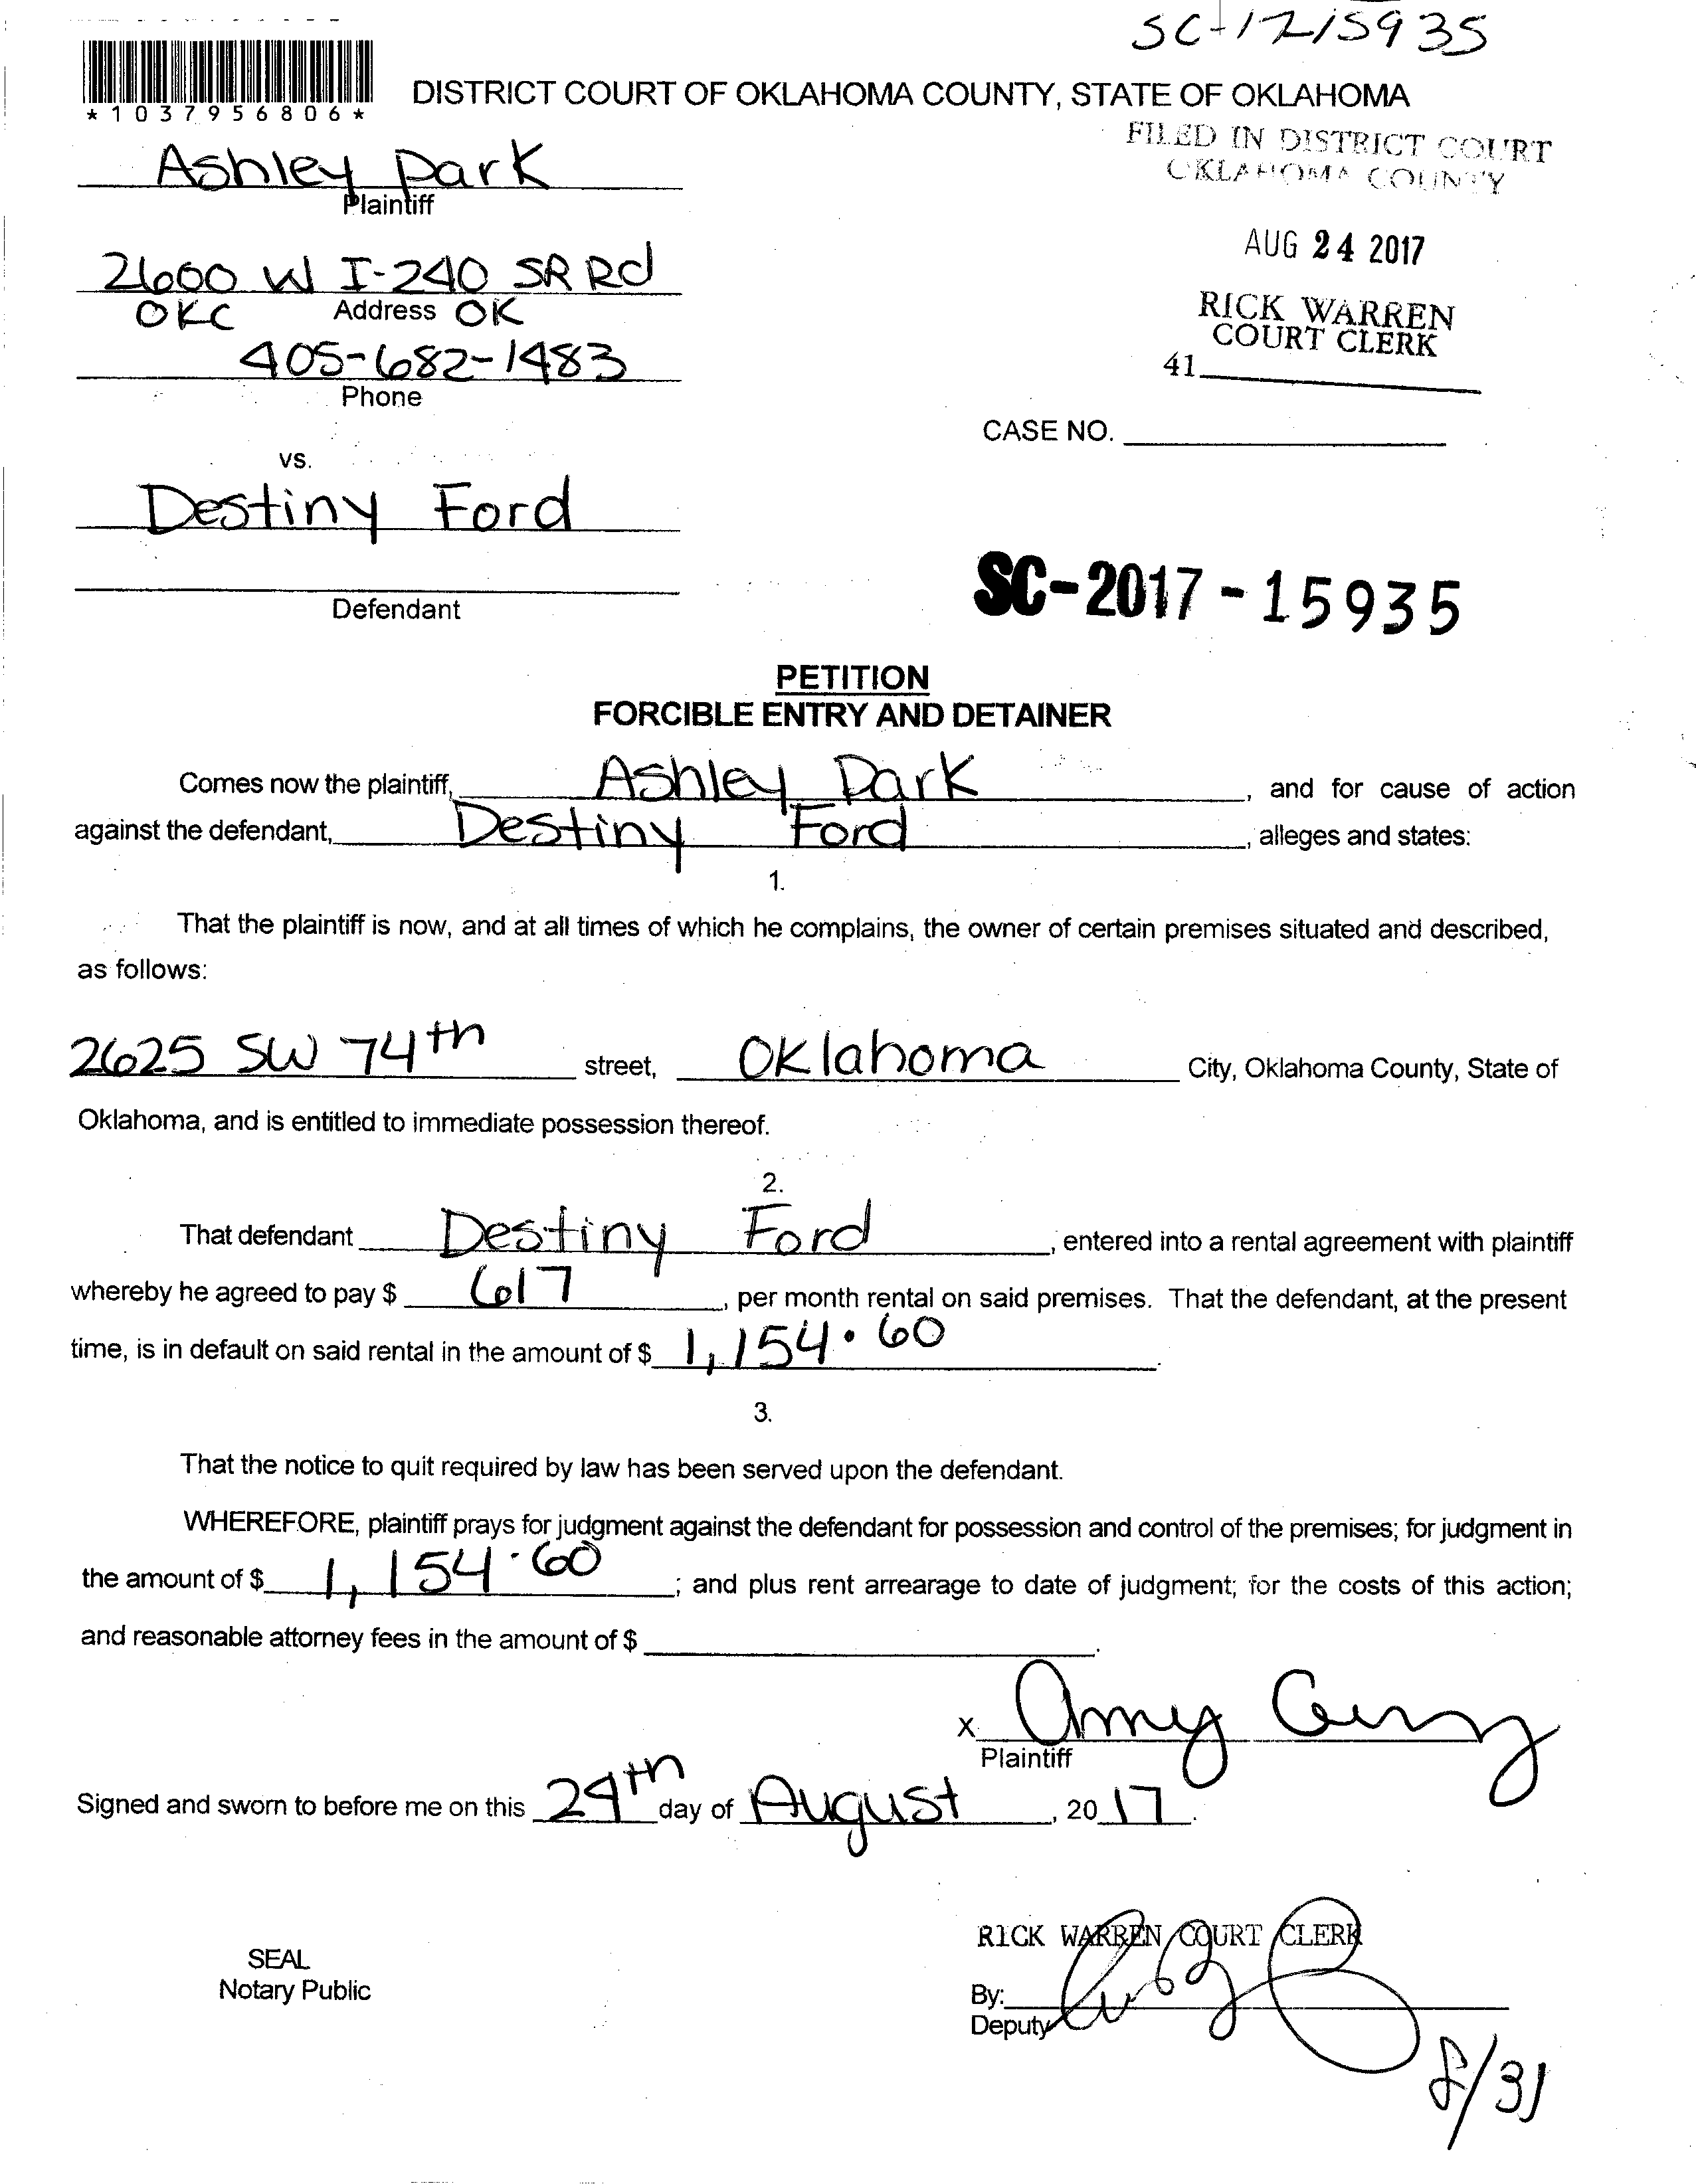 SC-17-15935
*1037956806*
DISTRICT COURT OF OKLAHOMA COUNTY, STATE OF OKLAHOMA
FILED IN DISTRICT COURT
OKLAHOMA COUNTY
Ashley Park
Plaintiff
AUG 24 2017
2600 W I-240 SR Rd
OKC Address OK
RICK WARREN
COURT CLERK
41
405-682-1483
Phone
CASE NO.
vs.
Destiny Ford
Defendant
SC-2017-15935
PETITION
FORCIBLE ENTRY AND DETAINER
Comes now the plaintiff, Ashley Park, and for cause of action
against the defendant, Destiny Ford, alleges and states:
1.
That the plaintiff is now, and at all times of which he complains, the owner of certain premises situated and described,
as follows:
2625 SW 74th street, Oklahoma City, Oklahoma County, State of
Oklahoma, and is entitled to immediate possession thereof.
2.
That defendant Destiny Ford, entered into a rental agreement with plaintiff
whereby he agreed to pay $ 617, per month rental on said premises. That the defendant, at the present
time, is in default on said rental in the amount of $ 1,154.60.
3.
That the notice to quit required by law has been served upon the defendant.
WHEREFORE, plaintiff prays for judgment against the defendant for possession and control of the premises; for judgment in
the amount of $ 1,154.60; and plus rent arrearage to date of judgment; for the costs of this action;
and reasonable attorney fees in the amount of $ .
x Amy
Plaintiff
Signed and sworn to before me on this 24th day of August, 2017.
RICK WARREN COURT CLERK
SEAL
Notary Public
By:
Deputy
8/31